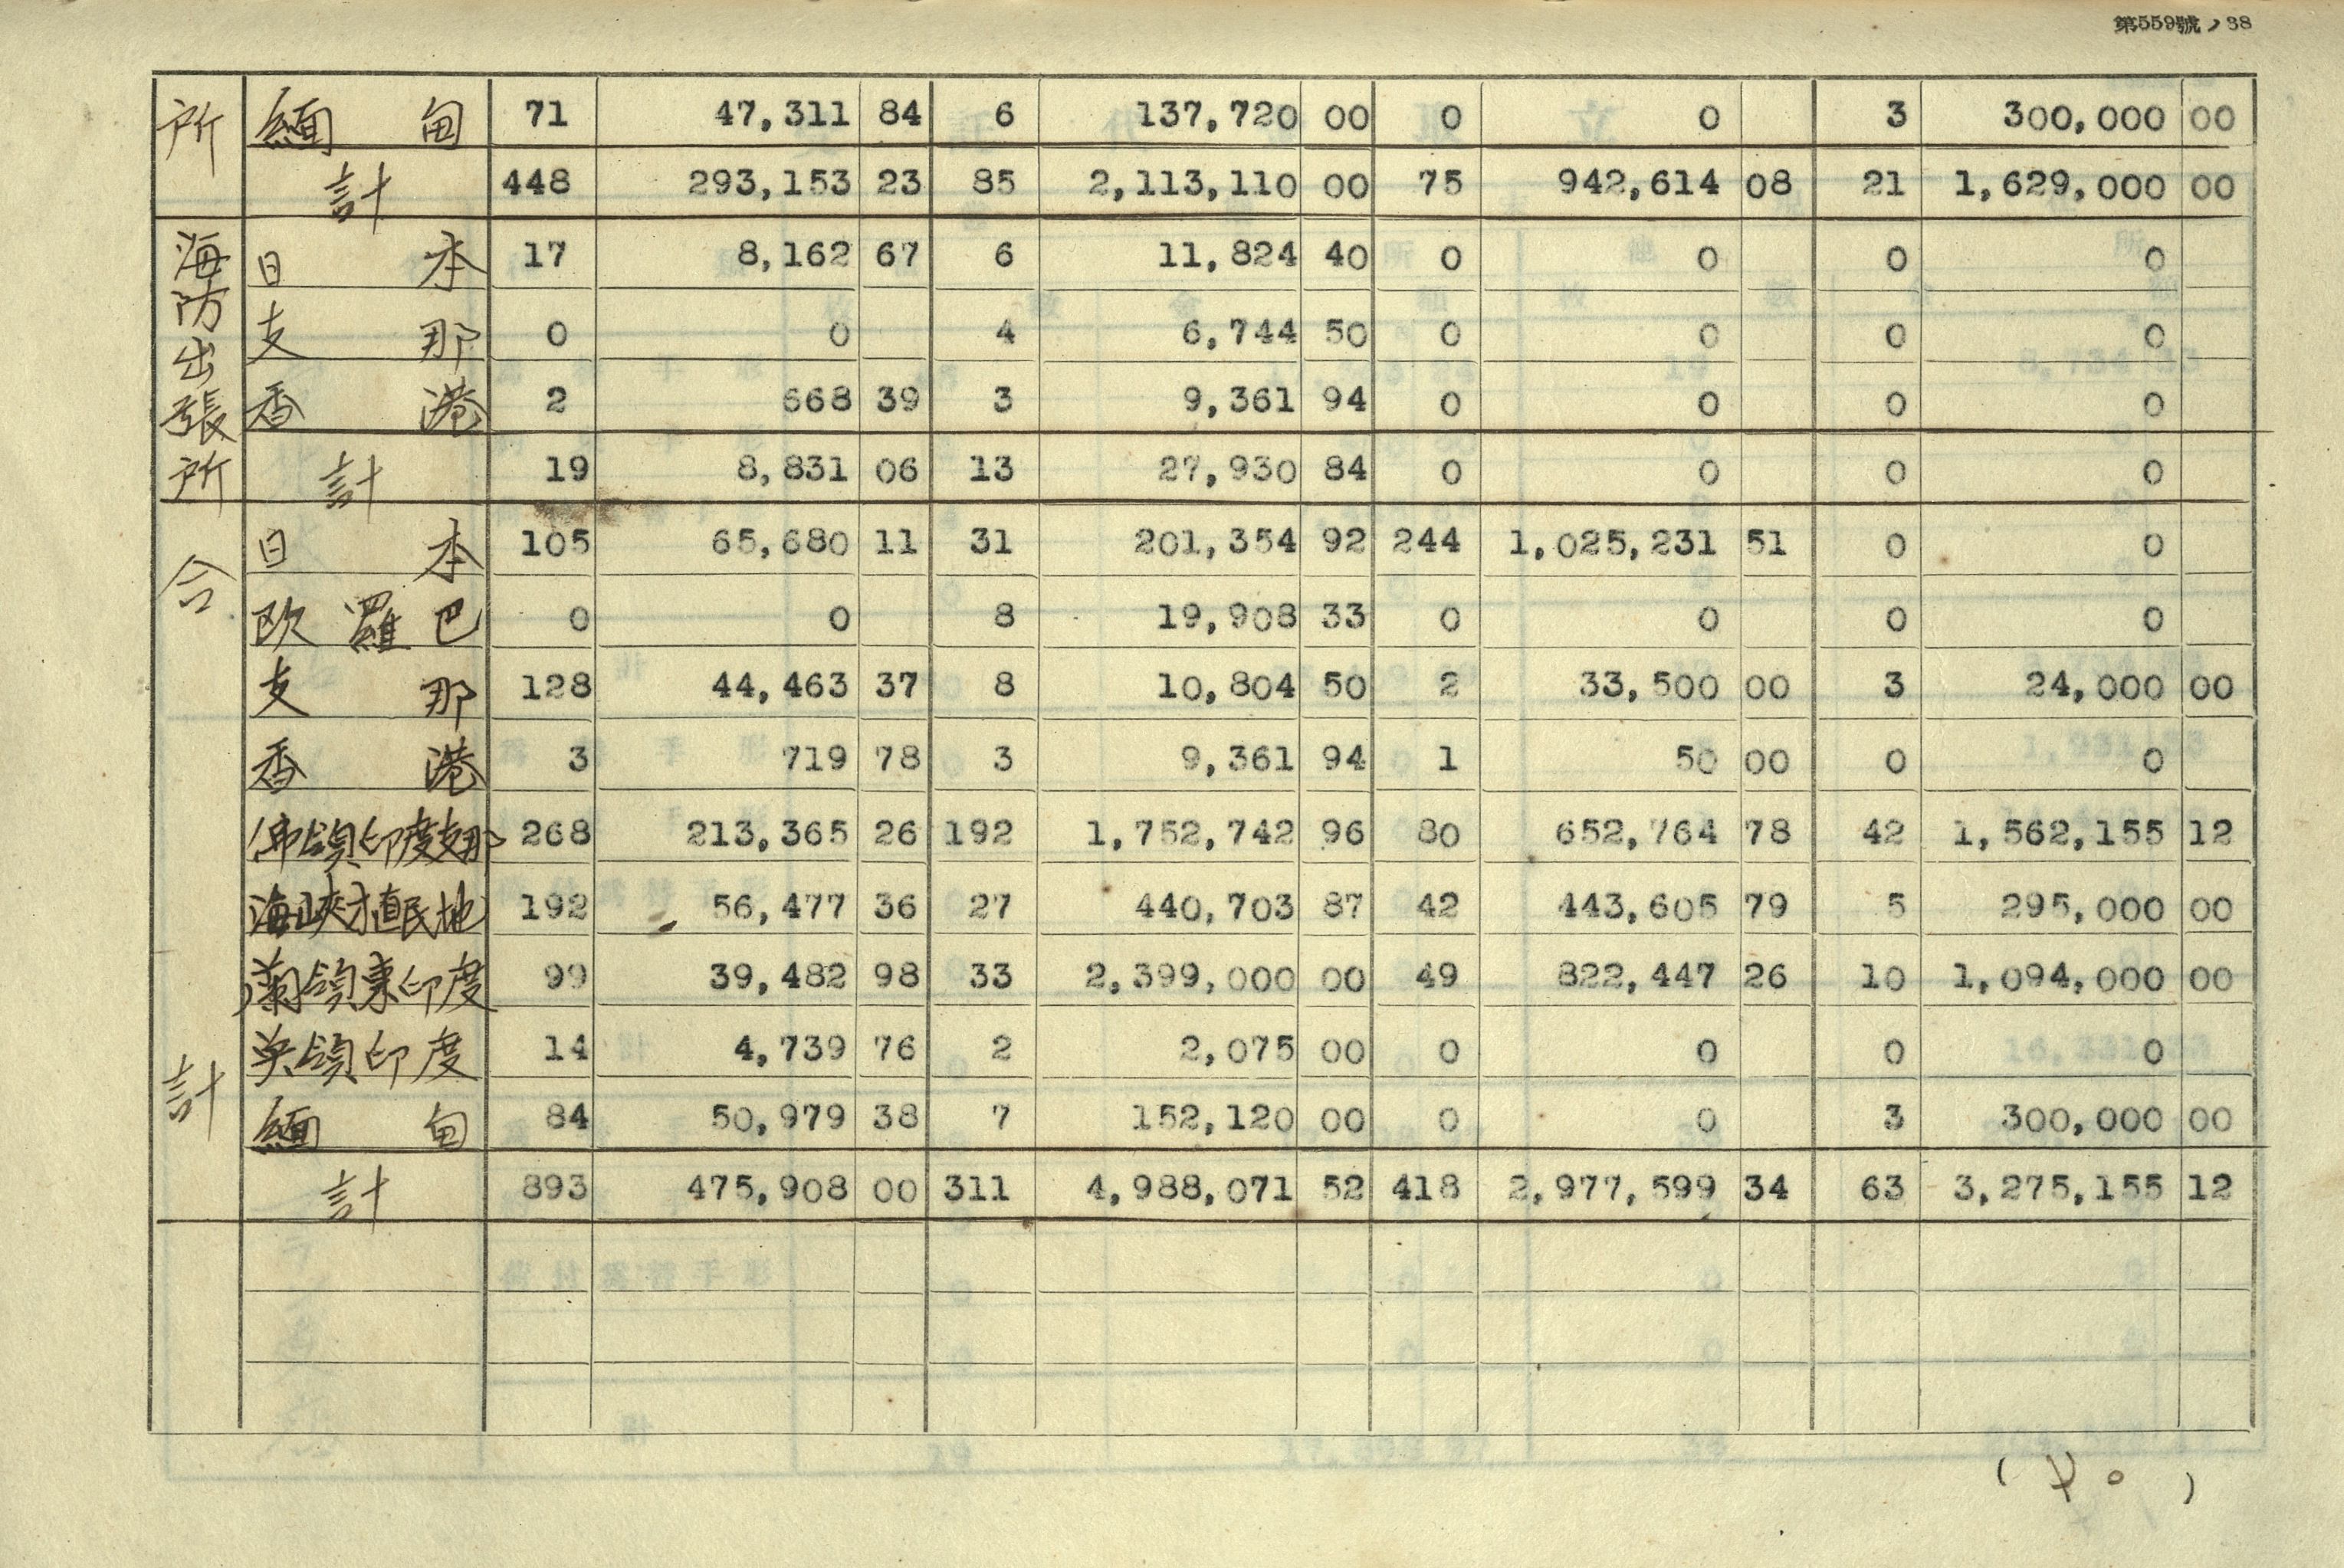 第559號ノ38
所 緬甸 71 47,311 84 6 137,720 00 0 0 3 300,000 00
計 448 293,153 23 85 2,113,110 00 75 942,614 08 21 1,629,000 00
海防出張所 日本 17 8,162 67 6 11,824 40 0 0 0 0
支那 0 0 4 6,744 50 0 0 0 0
香港 2 668 39 3 9,361 94 0 0 0 0
計 19 8,831 06 13 27,930 84 0 0 0 0
合計 日本 105 65,680 11 31 201,354 92 244 1,025,231 51 0 0
欧羅巴 0 0 8 19,908 33 0 0 0 0
支那 128 44,463 37 8 10,804 50 2 33,500 00 3 24,000 00
香港 3 719 78 3 9,361 94 1 50 00 0 0
佛領印度支那 268 213,365 26 192 1,752,742 96 80 652,764 78 42 1,562,155 12
海峽植民地 192 56,477 36 27 440,703 87 42 443,605 79 5 295,000 00
蘭領東印度 99 39,482 98 33 2,399,000 00 49 822,447 26 10 1,094,000 00
英領印度 14 4,739 76 2 2,075 00 0 0 0 0
緬甸 84 50,979 38 7 152,120 00 0 0 3 300,000 00
計 893 475,908 00 311 4,988,071 52 418 2,977,599 34 63 3,275,155 12